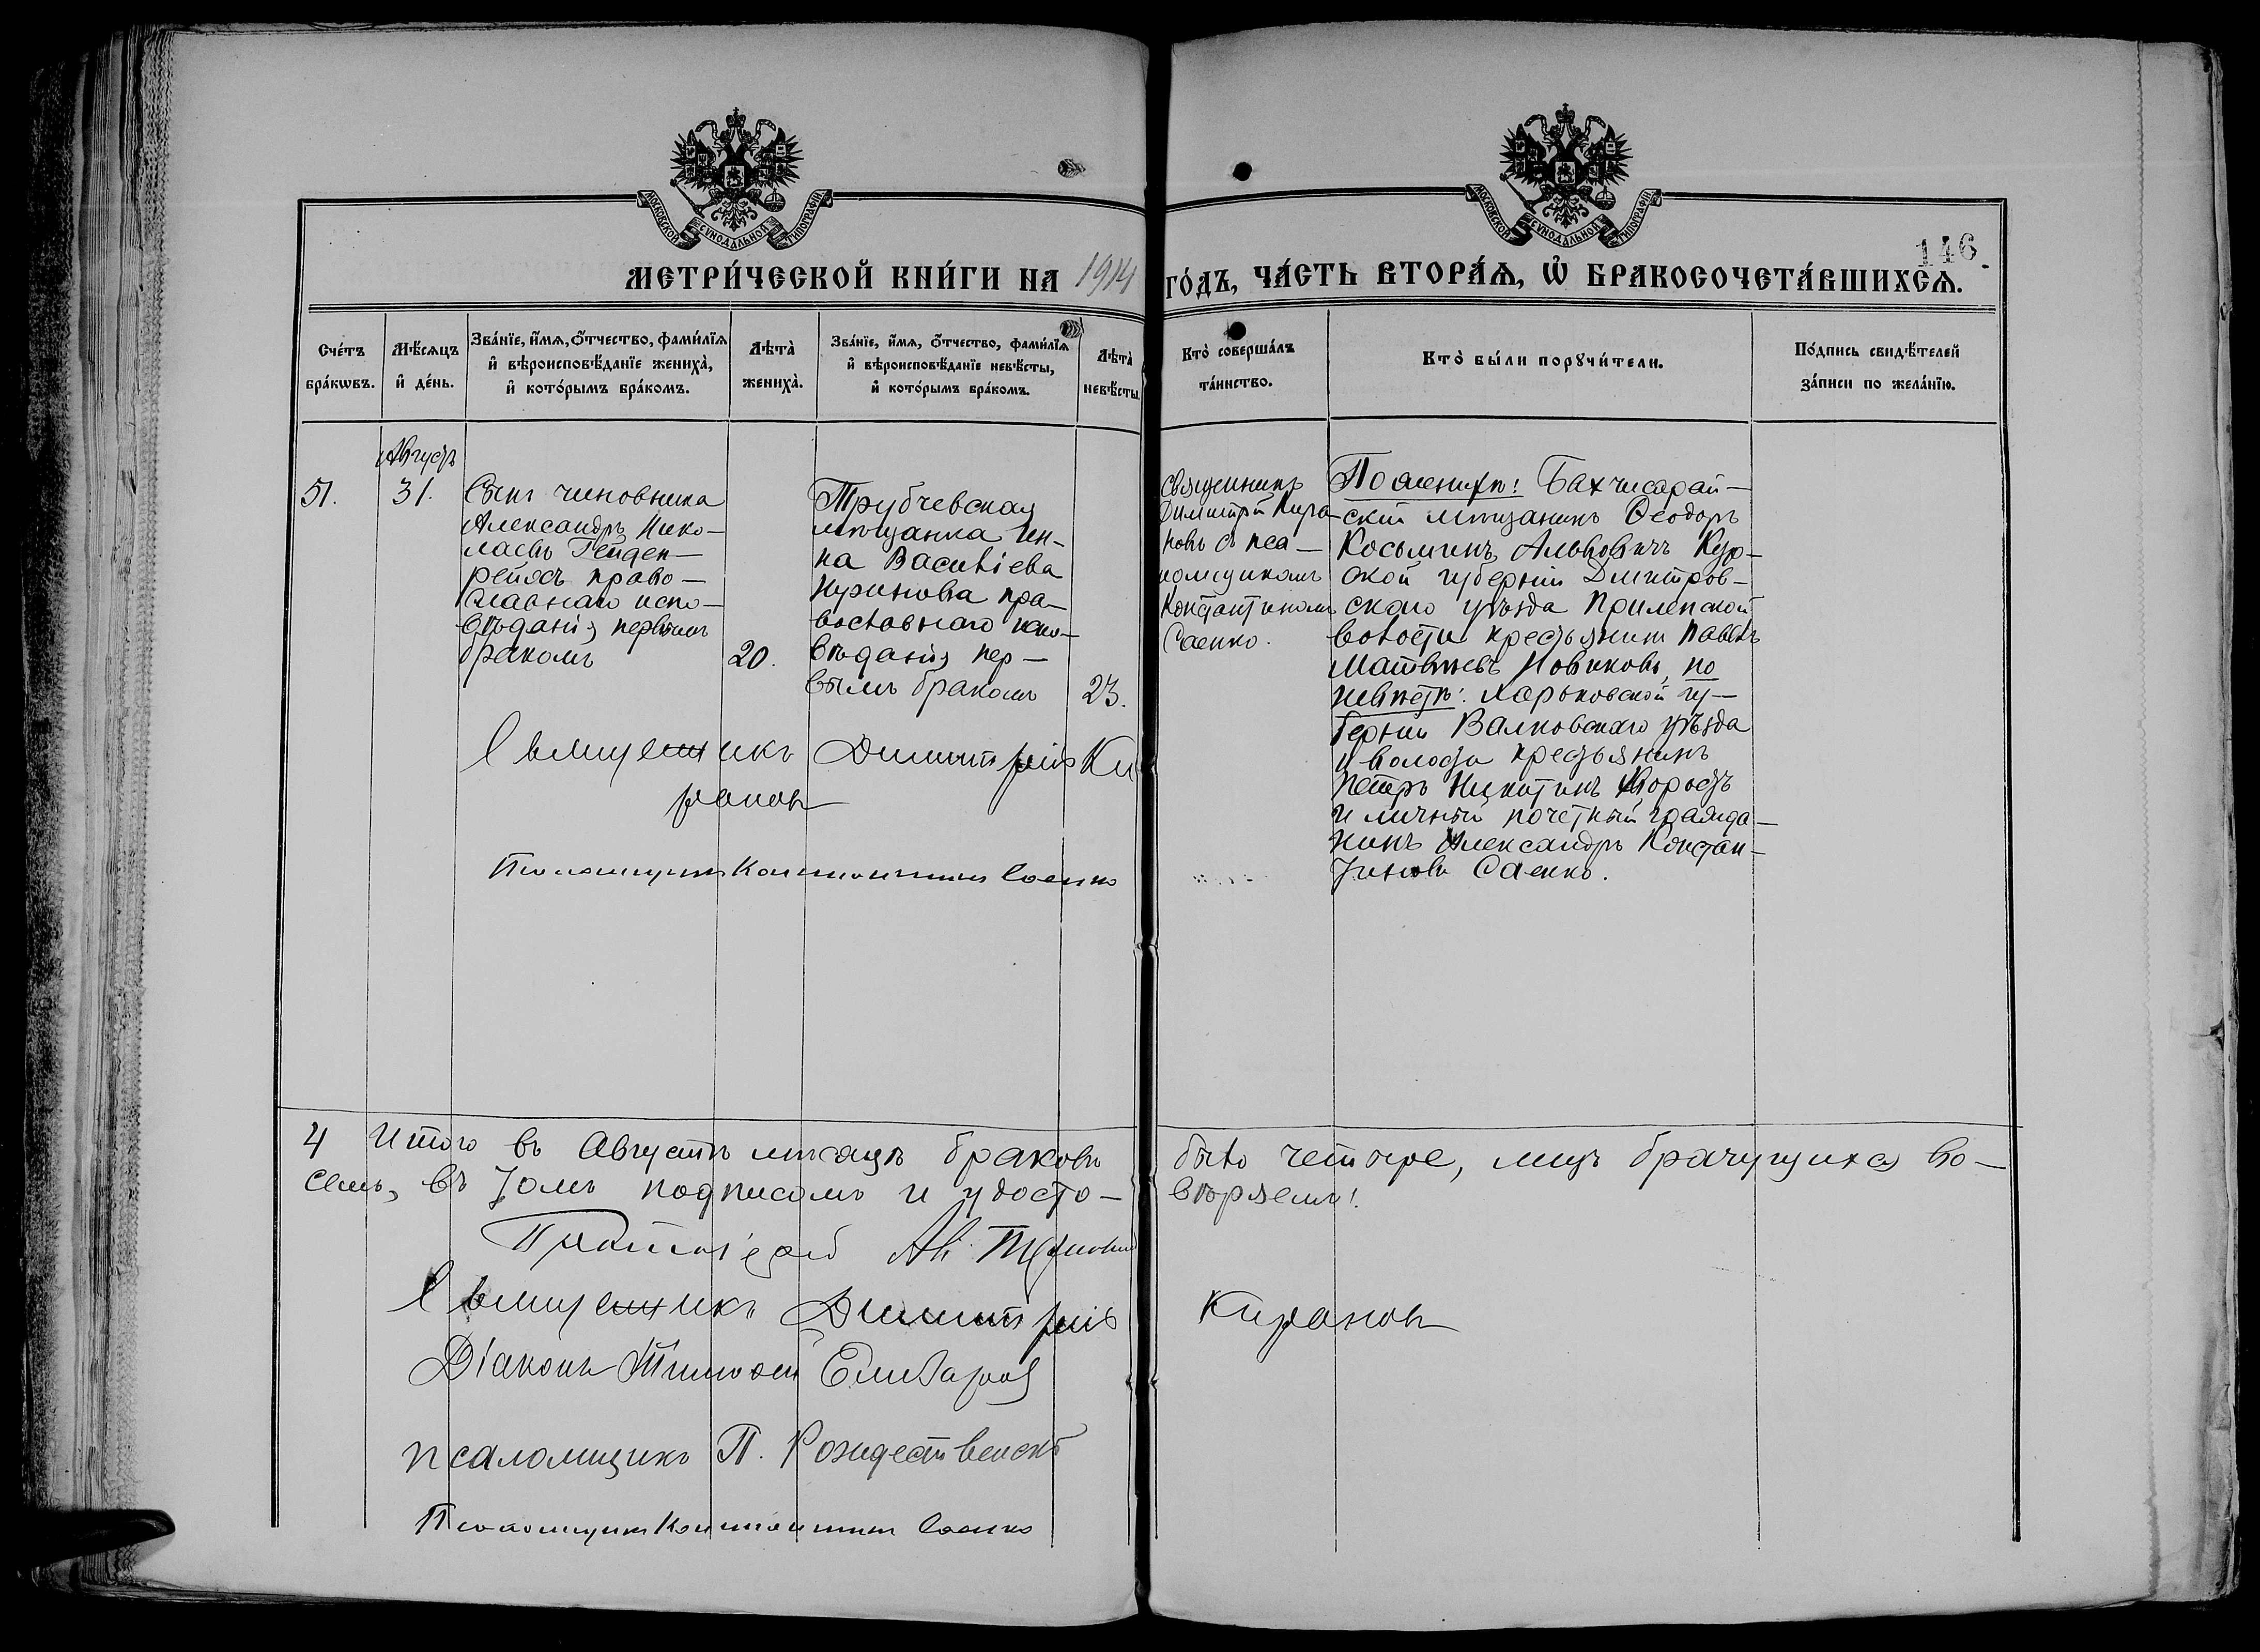 МОСКОВСКОЙ СѴНОДАЛЬНОЙ ТИПОГРАФІИ
МОСКОВСКОЙ СѴНОДАЛЬНОЙ ТИПОГРАФІИ
146.
МЕТРИ́ЧЕСКОЙ КНИ́ГИ НА 1914 ГО́ДЪ, ЧА́СТЬ ВТОРА́Ѧ, Ѡ҆ БРАКОСОЧЕТА́ВШИХСѦ.
Сче́тъ бра́кѡвъ.
Мѣ́сѧцъ и҆ де́нь.
Зва́нїе, и҆́мѧ, ѻ҆́тчество, фами́лїѧ
и҆ вѣроисповѣ́данїе жениха̀,
и҆ кото́рымъ бра́комъ.
Лѣта̀ жениха̀.
Зва́нїе, и҆́мѧ, ѻ҆́тчество, фами́лїѧ
и҆ вѣроисповѣ́данїе невѣ́сты,
и҆ кото́рымъ бра́комъ.
Лѣта̀ невѣ́сты.
Кто̀ соверша́лъ
та́инство.
Кто̀ бы́ли порꙋчи́тели.
По́дпись свидѣ́телей
за́писи по жела́нїю.
51.
Августъ
31.
Сынъ чиновника
Александръ Нико-
лаевъ Гейден-
рейхъ право-
славнаго испо-
вѣданія первымъ
бракомъ
20.
Трубчевская
мѣщанка Ин-
на Васильева
пра-
вославнаго испо-
вѣданія пер-
вымъ бракомъ
23.
Священникъ
Димитрій Кира-
новъ съ пса-
ломщикомъ
Константиномъ
Саенко.
По женихѣ: Бахчисарай-
скій мѣщанинъ Ѳеодоръ
Косьминъ Альховичъ Кур-
ской губерніи Дмитров-
скаго уѣзда Прилепской
волости крестьянинъ Павелъ
Матвѣевъ Новиковъ, по
невѣстѣ: Харьковской гу-
берніи Валковскаго уѣзда
и волости крестьянинъ
Петръ Никитинъ
и личный почетный гражда-
нинъ Александръ Констан-
тиновъ Саенко.
Священникъ Димитрій Ки
рановъ
Псаломщикъ Константинъ Саенко
4 Итого въ Августѣ мѣсяцѣ браковъ было четыре, лицъ брачущихся во-
семь, въ томъ подписомъ и удосто-вѣряемъ!
Протоіерей
Священникъ Димитрій Кирановъ
Діаконъ Тимоѳей Елпидо
Псаломщикъ П. Рождественскій
Псаломщикъ Константинъ Саенко